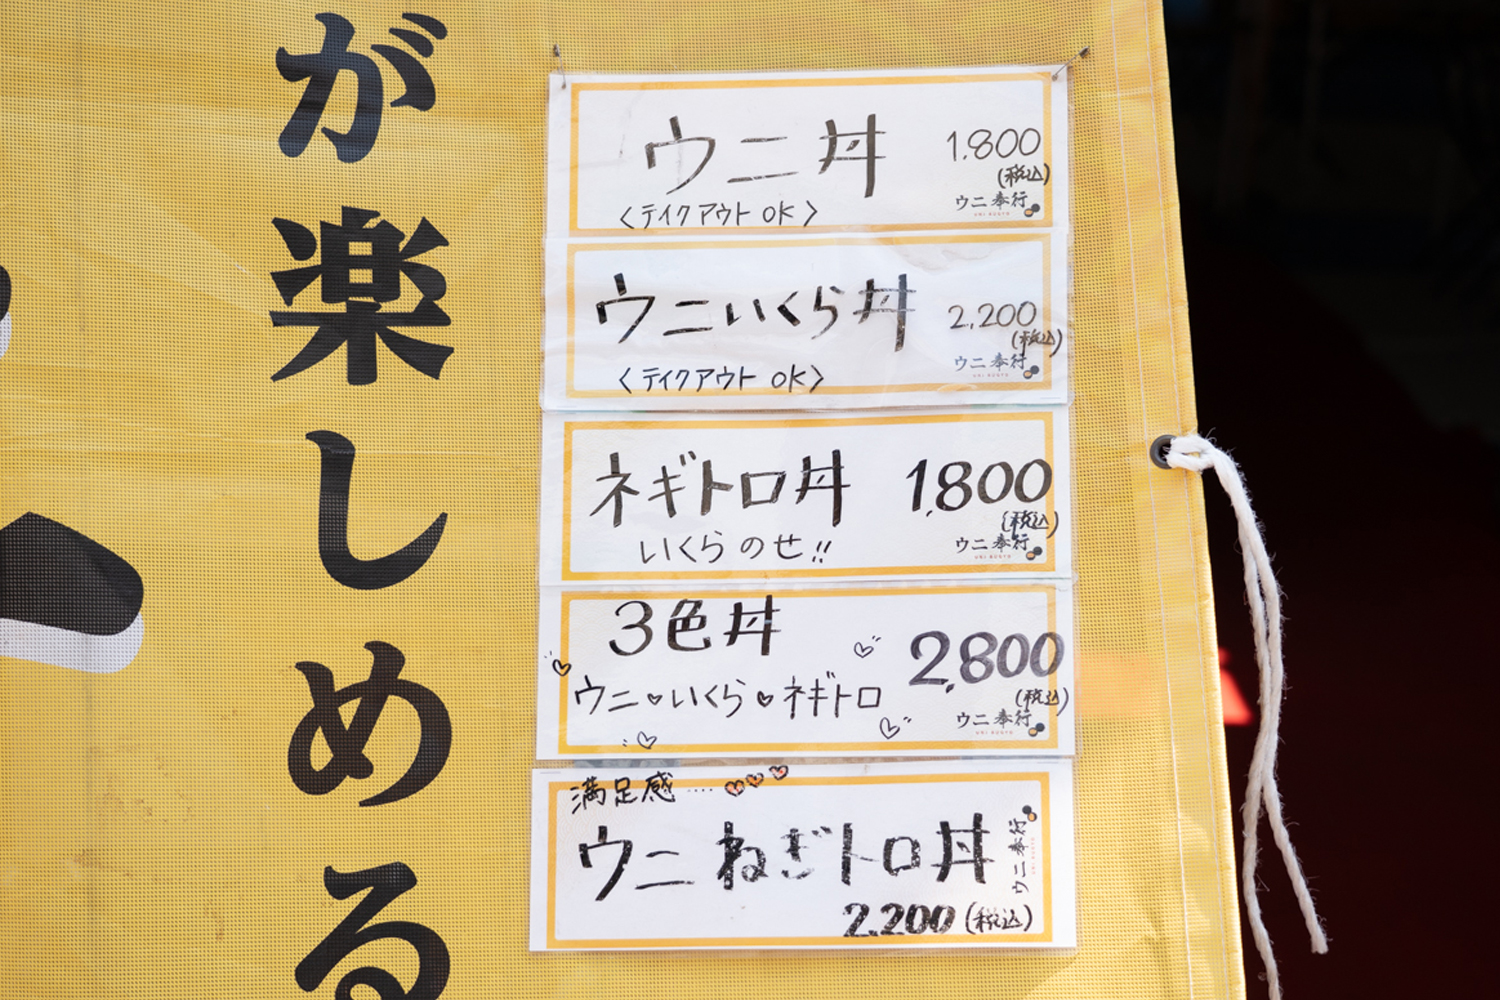 が楽しめる
ウニ丼
1.800
(税込)
〈テイクアウトOK〉
ウニ奉行
ウニいくら丼
2,200
(税込)
〈テイクアウトOK〉
ウニ奉行
ネギトロ丼
1,800
(税込)
いくらのせ!!
ウニ奉行
3色丼
2,800
(税込)
ウニ♥いくら♥ネギトロ
ウニ奉行
満足感....♡♡♡
ウニねぎトロ丼
ウニ奉行
2.200(税込)